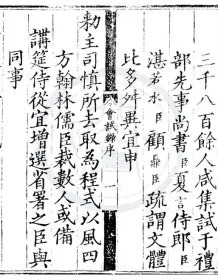 三千八百餘人咸集試于禮
部先事尚書臣夏言侍郎臣
湛若水臣顧鼎臣疏謂文體
比多舛異宜申
會試錄序
一
勅主司慎所去取為程式以風四
方翰林儒臣裁數人或備
講筵侍從宜增選省署之臣與
同事